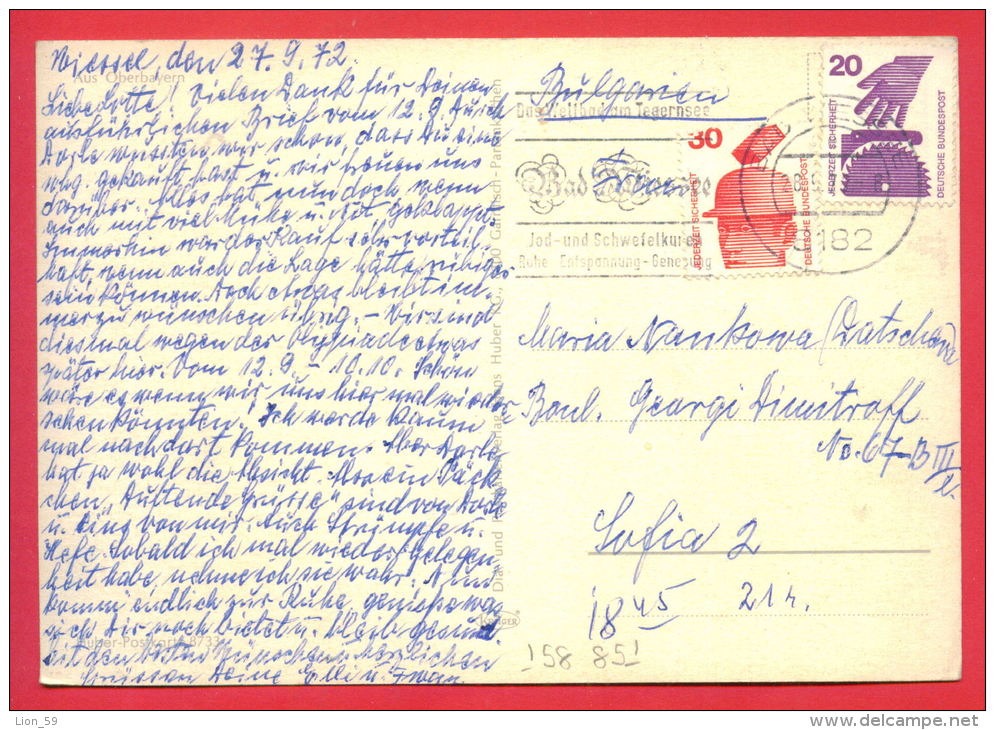 Wiessee, den 27.9.72.
Aus Oberbayern
Liebe Lotte! Vielen Dank für Deinen
ausführlichen Brief vom 12.9. Durch
Dorle wussten wir schon, dass Du eine
gekauft hast u. wir freuen uns
darüber. es hat nun doch, wenn
auch mit viel Mühe u. Not geklappt.
Immerhin war der Kauf sehr vorteil-
haft, wenn auch die Lage hätte ruhiger
sein können. Doch etwas bleibt im-
mer zu wünschen übrig. - Wir sind
diesmal wegen der Olympiade etwas
später hier. Vom 12.9. - 10.10. Schön
wäre es wenn wir uns hier mal wieder
sehen könnten. Ich werde kaum
mal nach dort kommen. Aber Dorle
hat ja wohl die Absicht. Päck-
chen "Duftende Grüsse" sind von Dorle
u. eins von mir. Auch Strümpfe u.
Hefe. Sobald ich mal wieder Gelegen-
heit habe, nehme ich sie wahr. Nun
komm endlich zur Ruhe, geniesse was
sich Dir noch bietet u. bleib gesund
Mit den besten Wünschen u. herzlichen
Grüssen Deine Elli u. Iwan.
Huber-Postkarte 8733
Bulgarien
Das Weltbad am Tegernsee
Bad Wiessee
Jod- und Schwefelkuren
Ruhe - Entspannung - Genesung
8182
30
JEDERZEIT SICHERHEIT
DEUTSCHE BUNDESPOST
20
JEDERZEIT SICHERHEIT
DEUTSCHE BUNDESPOST
Maria Nankowa (Datscheva)
Boul. Georgi Dimitroff
No. 67-B III
Sofia 2
18 45 21 r.
158 851
KRÜGER
Hans Huber K.G., Garmisch-Partenkirchen
Lion_59
www.delcampe.net